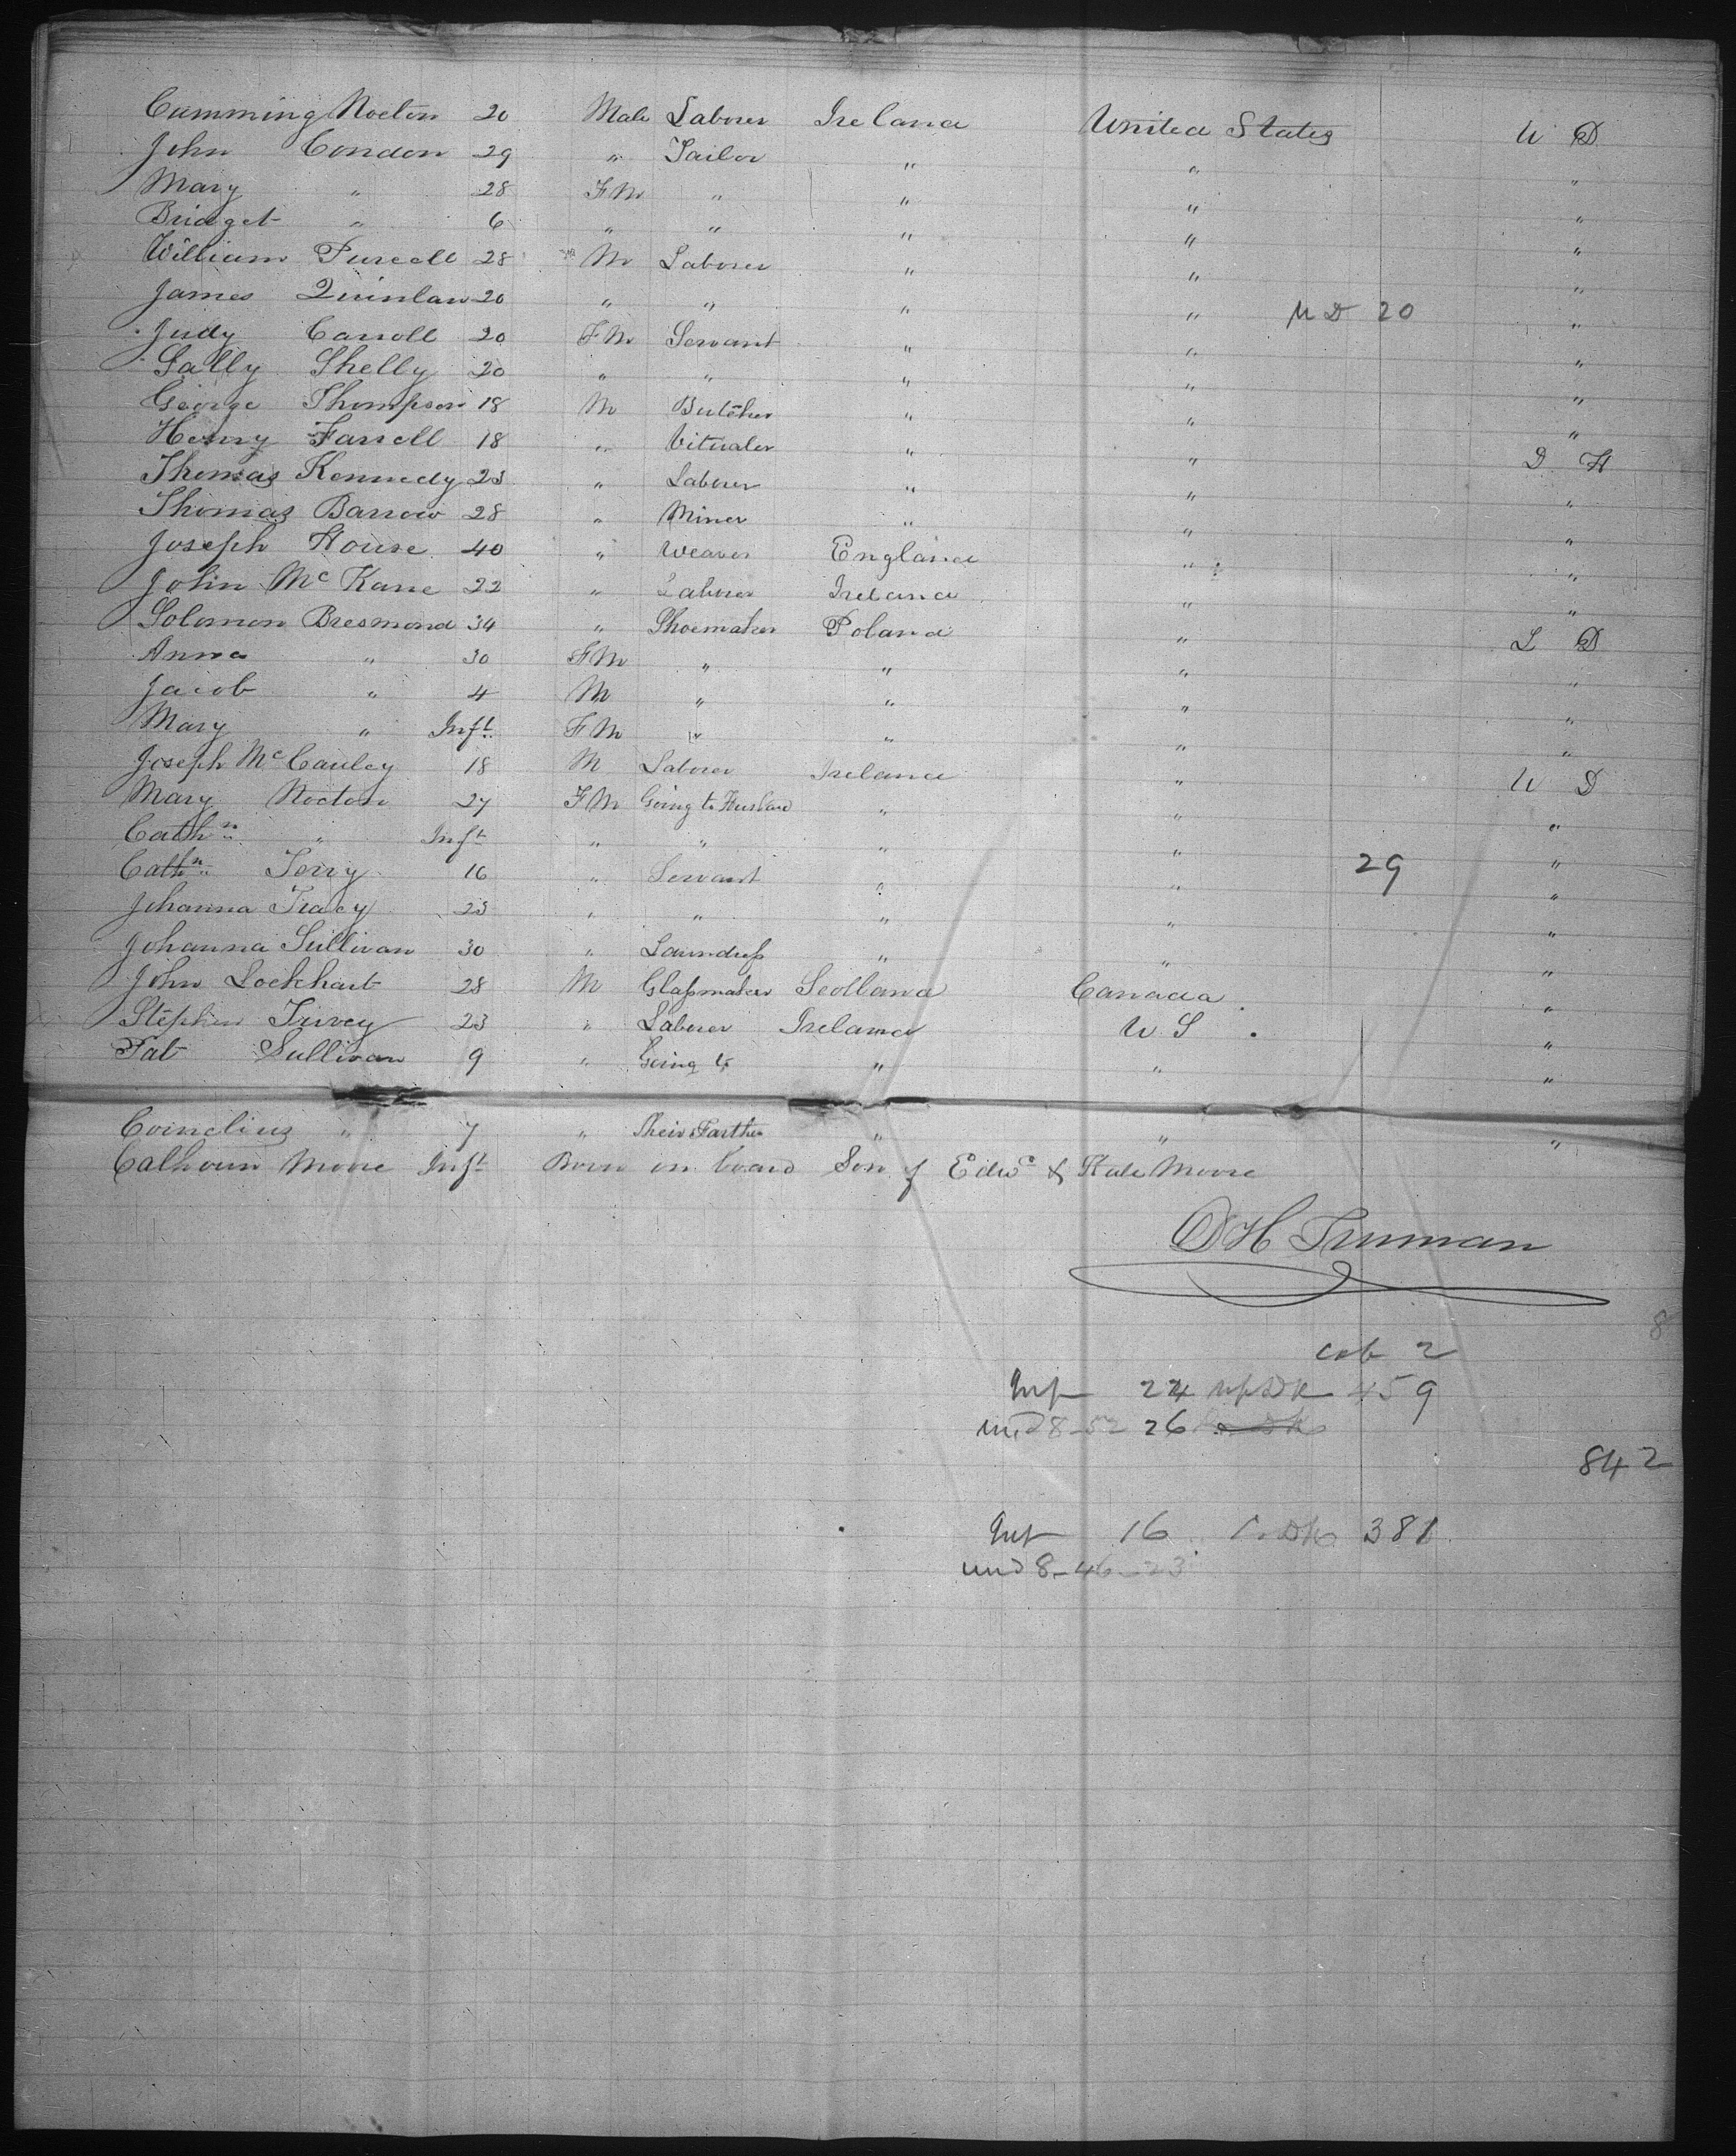 Cumming Nocton 20 Male Laborer Ireland United States U D
John Condon 29 " Tailor " " "
Mary " 28 F M " " " "
Bridget " 6 " " " " "
William Purcell 28 M Laborer " " "
James Quinlan 20 " " " " U D 20 "
Judy Carroll 20 F M Servant " " "
Sally Shelly 20 " " " " "
George Thompson 18 M Butcher " " "
Henry Farrell 18 " Vitualer " " D H
Thomas Kennedy 23 " Laborer " " "
Thomas Barrow 28 " Miner " " "
Joseph House 40 " Weaver England " "
John McKane 22 " Laborer Ireland " "
Solomon Bresmond 34 " Shoemaker Poland " L D
Anna " 30 F M " " " "
Jacob " 4 M " " " "
Mary " Inft F M " " " "
Joseph McCauley 18 M Laborer Ireland " U D
Mary Nocton 27 F M Going to Husband " " "
Cathn " Inft " " " " 29 "
Cathn Terry 16 " Servant " " "
Johanna Tracy 23 " " " " "
Johanna Sullivan 30 " Laundress " " "
John Lockhart 28 M Glassmaker Scotland Canada "
Stephen Turvey 23 " Laborer Ireland U S "
Pat Sullivan 9 " Going to " " "
Cornelius " 7 " Their Farther " " "
Calhoun Moore Inft Born on board Son of Edwd & Kate Moore
O H Truman
8
cab 2
Inf 24 up DK 459
und 8-52 26
842
Inf 16 DK 381
und 8-46-23